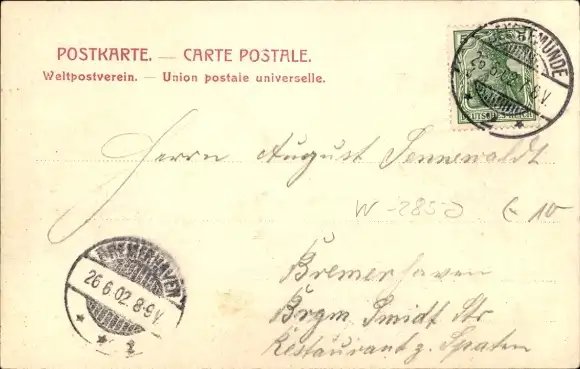 POSTKARTE. — CARTE POSTALE.
Weltpostverein. — Union postale universelle.
GEESTEMÜNDE
26.6.02. 8-9V.
DEUTSCHES REICH
5
Herrn August Sennewaldt
W-2850 € 10
BREMERHAVEN
26.6.02. 8-9V.
Bremerhaven
Brgm. Smidt Str
Restaurant z. Spaten